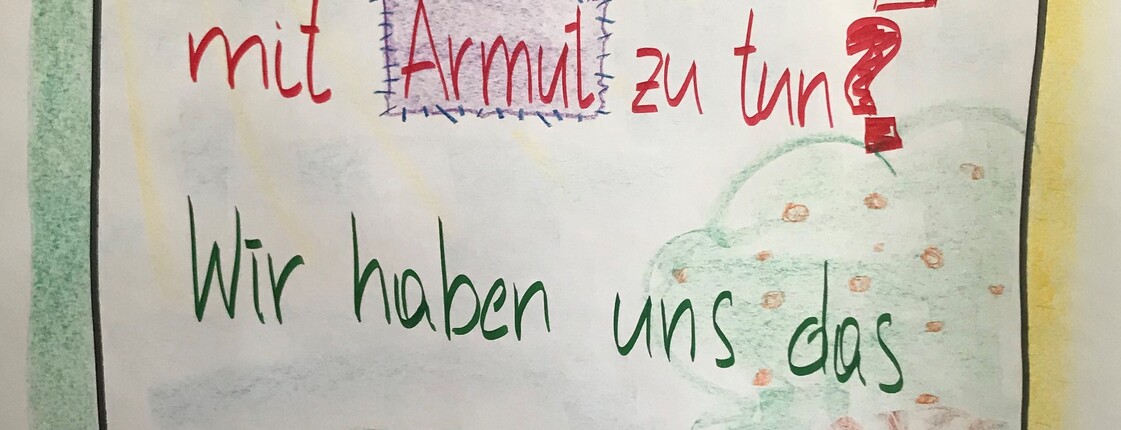 mit Armut zu tun?
Wir haben uns das